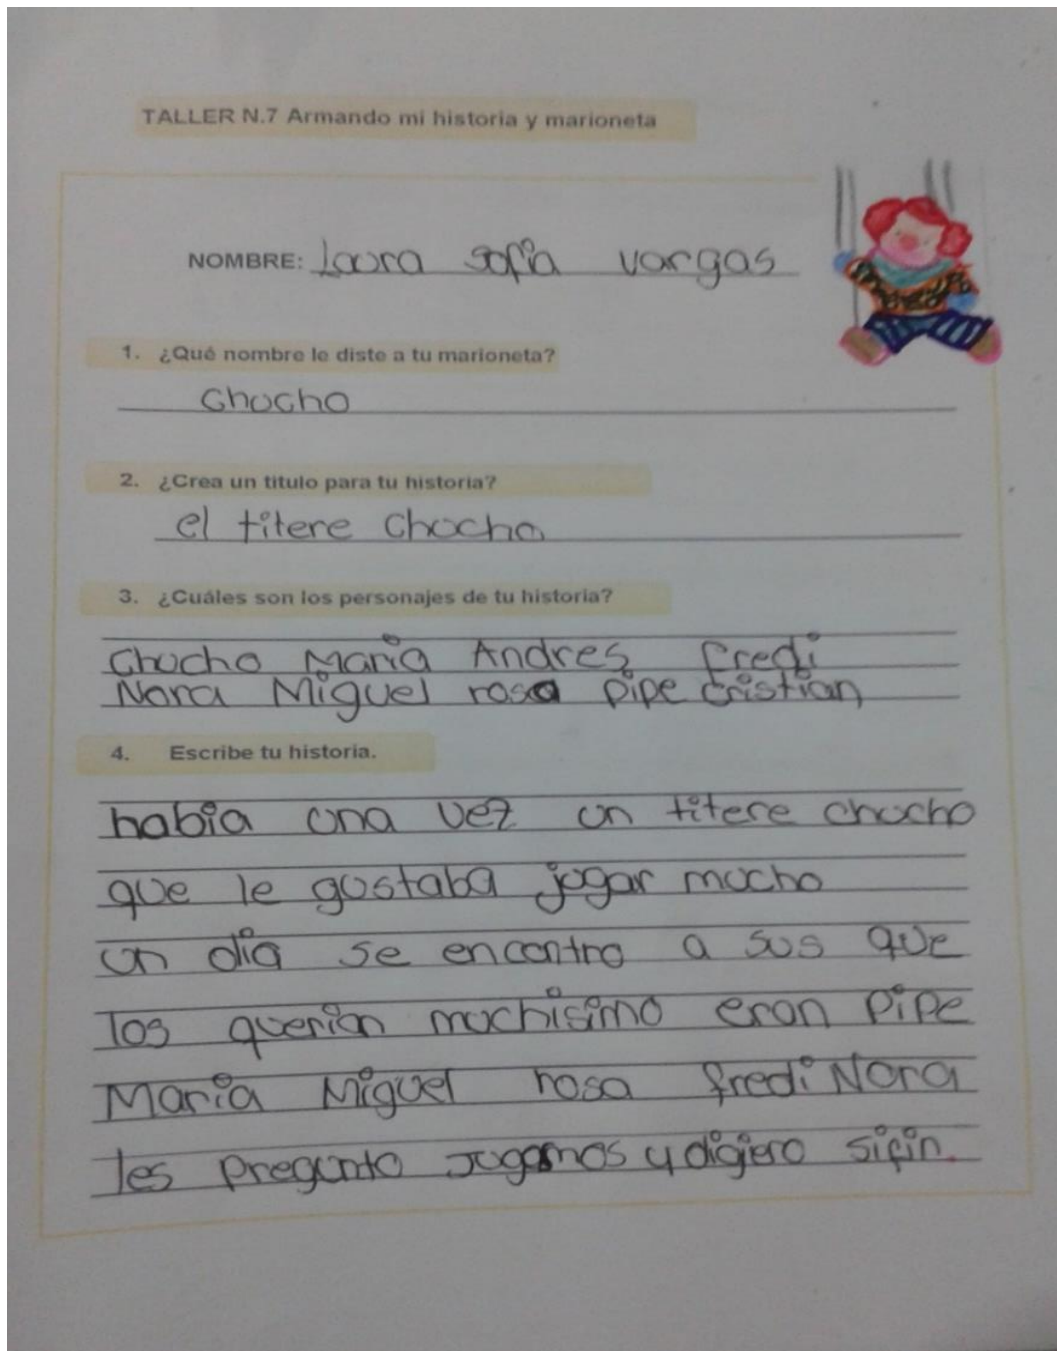 TALLER N.7 Armando mi historia y marioneta
NOMBRE: Laura sofia vargas
1. ¿Qué nombre le diste a tu marioneta?
Chucho
2. ¿Crea un titulo para tu historia?
el titere Chucho
3. ¿Cuáles son los personajes de tu historia?
Chucho Maria Andres fredi
Nora Miguel rosa pipe cristian
4. Escribe tu historia.
habia una vez un titere chucho
que le gustaba jugar mucho
un dia se encontro a sus que
los querian muchisimo eran pipe
Maria Miguel rosa fredi Nora
les pregunto jugamos y digiero sifin.